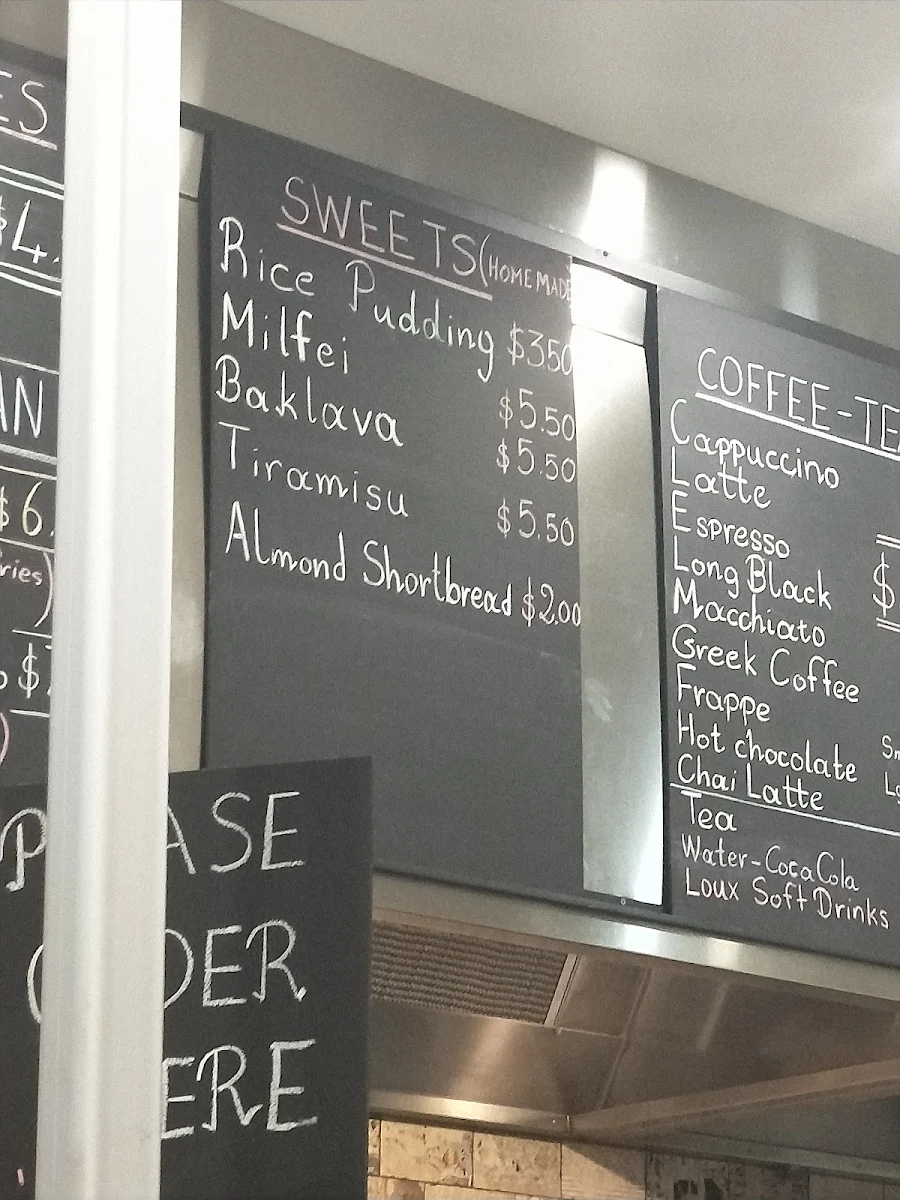 ES
$4.
AN
$6.
ries)
$
SWEETS (HOME MADE
Rice Pudding $3.50
Milfei $5.50
Baklava $5.50
Tiramisu $5.50
Almond Shortbread $2.00
COFFEE-TEA
Cappuccino
Latte
Espresso
Long Black $
Macchiato
Greek Coffee
Frappe
Hot chocolate Sm
Chai Latte Lg
Tea
Water-Coca Cola
Loux Soft Drinks
P ASE
DER
ERE